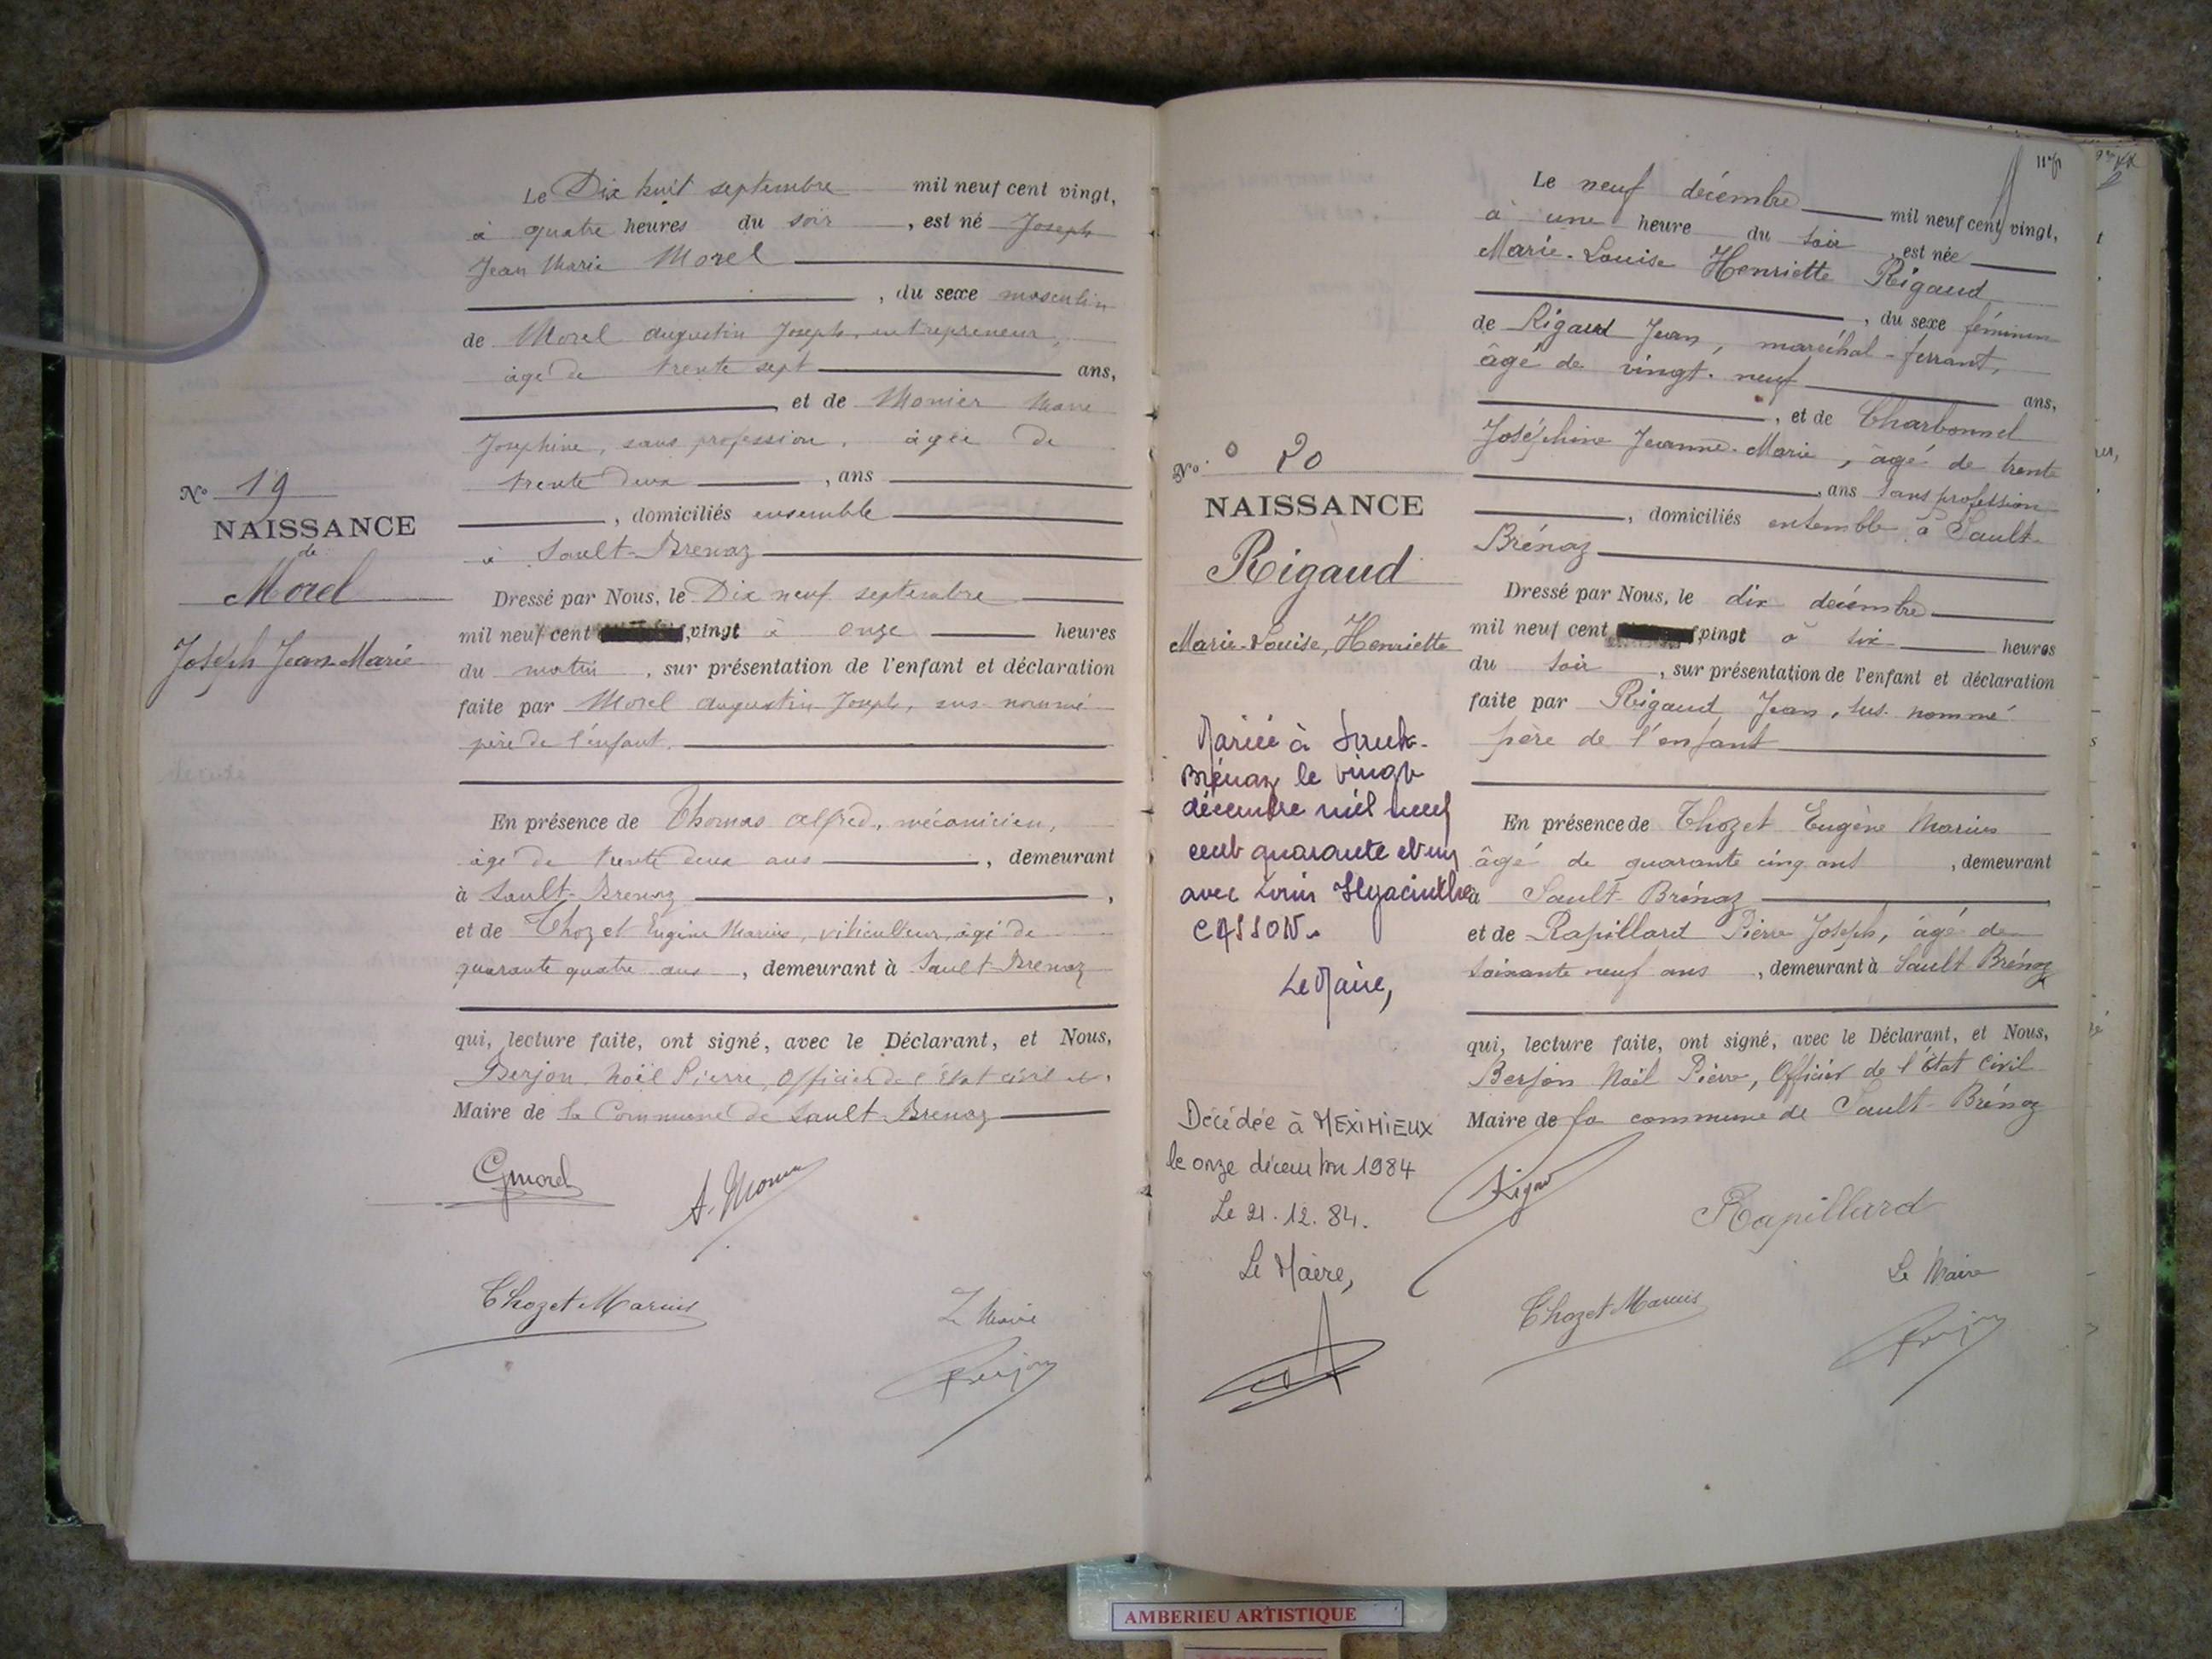 Le Dix huit septembre mil neuf cent vingt,
à quatre heures du soir, est né Joseph
Jean Marie Morel
, du sexe masculin
de Morel Augustin Joseph, entrepreneur,
âgé de trente sept ans,
et de Monier Marie
Josephine, sans profession, âgée de
trente deux, ans
, domiciliés ensemble
à Sault-Brenaz
Nº 19
NAISSANCE
de
Morel
Joseph Jean-Marie
Dressé par Nous, le Dix neuf septembre
mil neuf cent vingt à onze heures
du matin, sur présentation de l'enfant et déclaration
faite par Morel Augustin Joseph, sus-nommé
père de l'enfant.
En présence de Thomas Alfred, mécanicien,
âgé de trente deux ans, demeurant
à Sault-Brenaz,
et de Thozet Eugène Marius, viticulteur, âgé de
quarante quatre ans, demeurant à Sault-Brenaz
qui, lecture faite, ont signé, avec le Déclarant, et Nous,
Berjon Noël Pierre, Officier de l'État civil et.
Maire de la Commune de Sault-Brenaz
Thozet Marius
Le Maire
Berjon
Le neuf décembre mil neuf cent vingt,
à une heure du soir est née
Marie-Louise Henriette Rigaud
, du sexe féminin
de Rigaud Jean, maréchal-ferrant,
âgé de vingt-neuf ans,
, et de Charbonnel
Joséphine Jeanne-Marie, âgé de trente
, ans sans profession
, domiciliés ensemble à Sault-
Brénaz
Nº 20
NAISSANCE
Rigaud
Marie-Louise, Henriette
Mariée à Sault-
Brénaz le vingt
décembre mil neuf
cent quarante et un
avec Louis Hyacinthe
CASSON.
Le Maire,
Décédée à MEXIMIEUX
le onze décembre 1984
Le 21.12.84.
Le Maire,
Dressé par Nous, le dix décembre
mil neuf cent vingt à six heures
du soir, sur présentation de l'enfant et déclaration
faite par Rigaud Jean, sus-nommé
père de l'enfant
En présence de Thozet Eugène Marius
âgé de quarante cinq ans, demeurant
à Sault-Brénaz
et de Rapillard Pierre Joseph, âgé de
soixante neuf ans, demeurant à Sault Brénaz
qui, lecture faite, ont signé, avec le Déclarant, et Nous,
Berjon Noël Pierre, Officier de l'État Civil
Maire de la commune de Sault-Brénaz
Rigaud
Rapillard
Thozet Marius
Le Maire
Berjon
AMBERIEU ARTISTIQUE